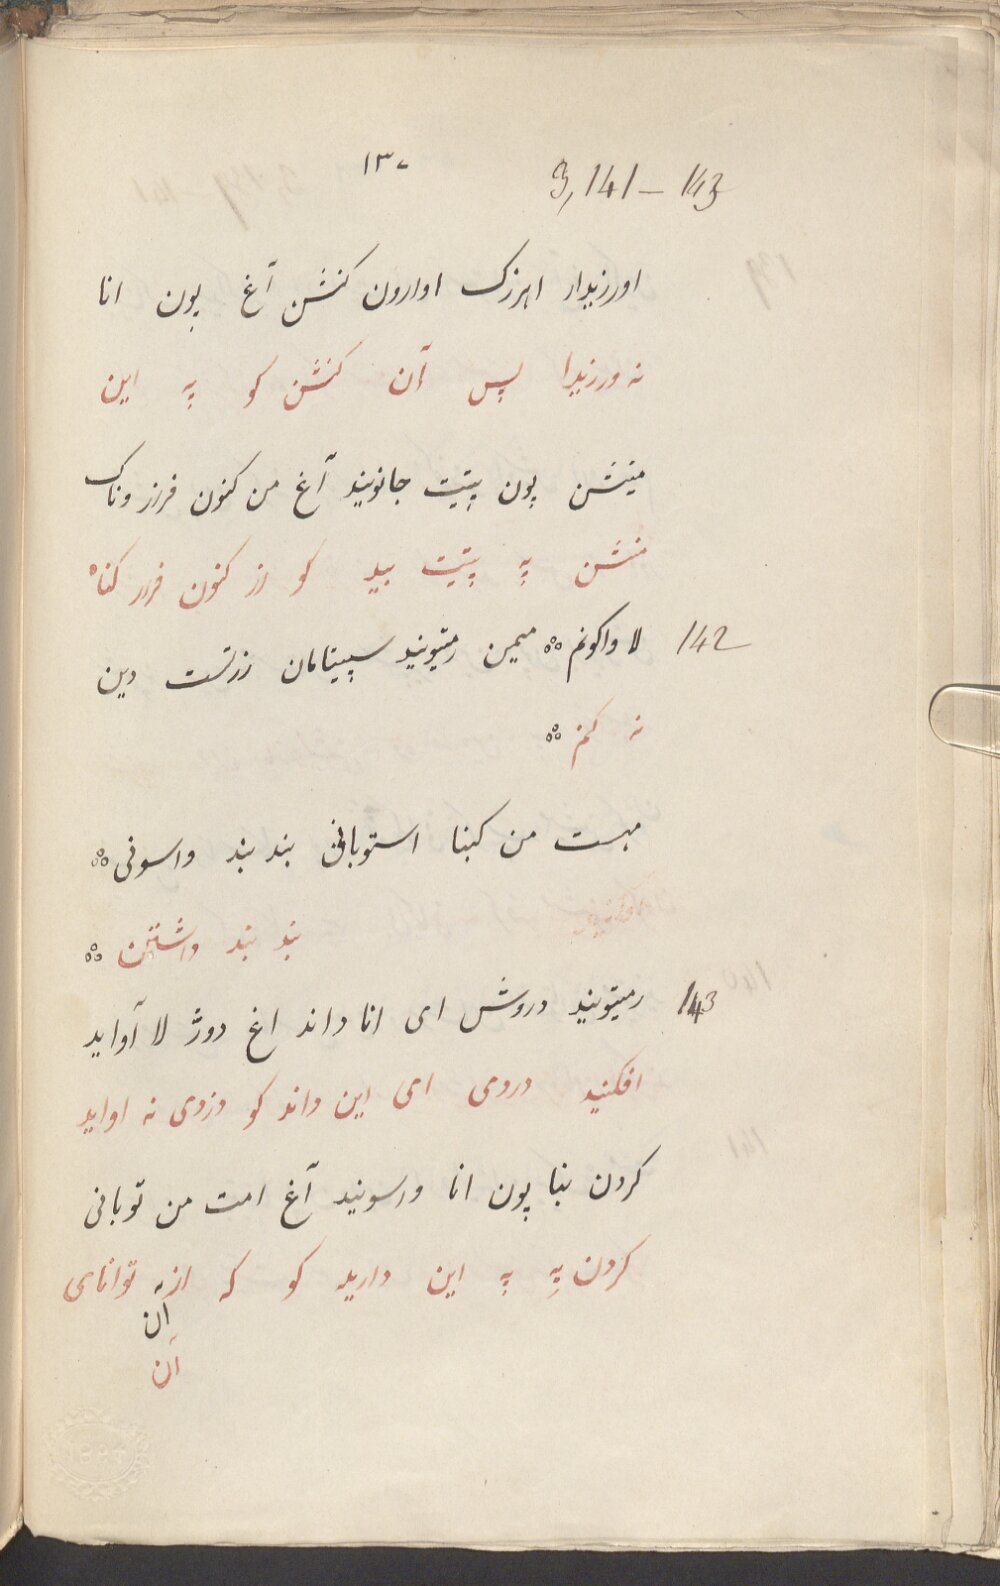 ١٣٧
3, 141 – 143
اورزیدار اہرزک اوارون کنشن آغ پون انا
نه ورزیدا پس آن کنشن کو په این
مینشن پون پتیت جانویند آغ من کنون فرز وناک
منشن په پتیت بید کو از کنون فراز کناه
142
لا واکونم ஃ میمین رمیتوینید سپیتامان زرتست دین
نه کنم ஃ
مبست من کبنا استوبانی بند بند واسونی ஃ
بند بند داشتن ஃ
143
رمیتویند دروش ای انا داند اغ دوژ لا آواید
افکنید دردی ای این داند کو دزدی نه اواید
کردن بنا پون انا ورسونید آغ امت من توبانی
کردن په په این دارید کو که از توانای
آن
آن